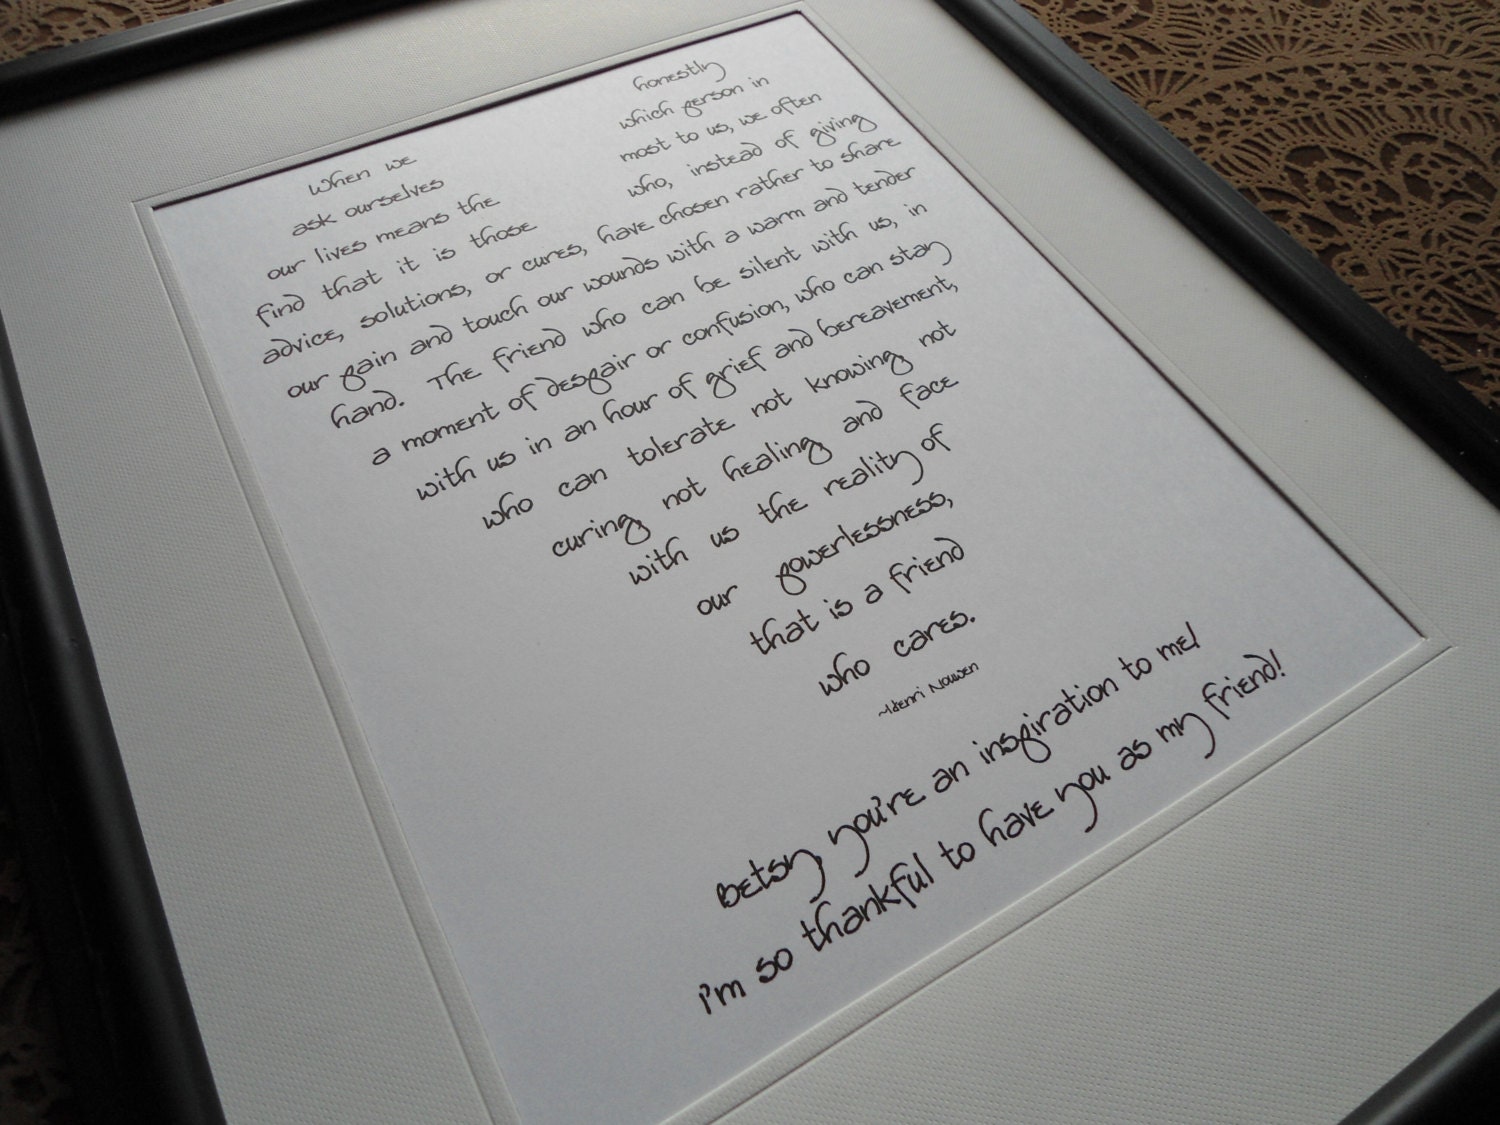 When we honestly
ask ourselves which person in
our lives means the most to us, we often
find that it is those who, instead of giving
advice, solutions, or cures, have chosen rather to share
our pain and touch our wounds with a warm and tender
hand. The friend who can be silent with us, in
a moment of despair or confusion, who can stay
with us in an hour of grief and bereavement,
who can tolerate not knowing not
curing, not healing and face
with us the reality of
our powerlessness,
that is a friend
who cares.
~Henri Nouwen
Betsy, you're an inspiration to me!
i'm so thankful to have you as my friend!